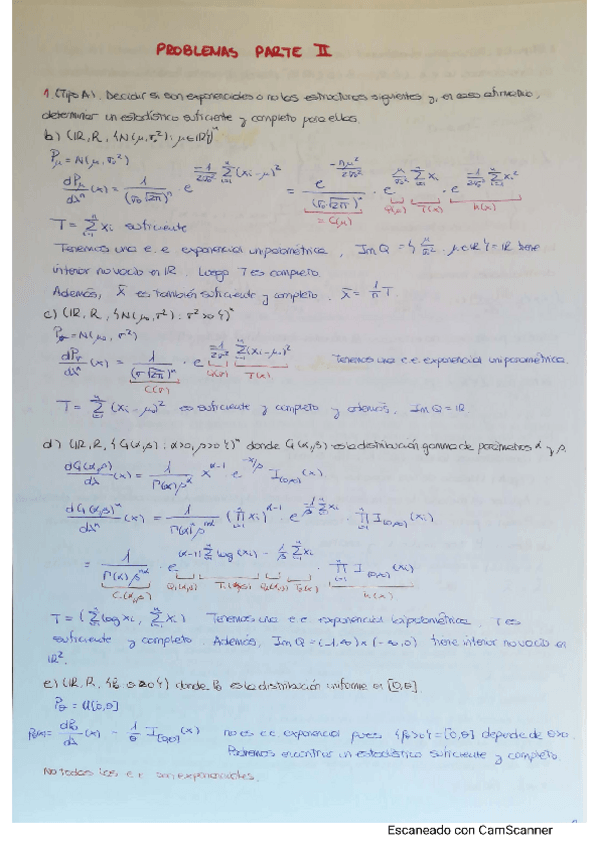 PROBLEMAS PARTE II
1. (Tipo A). Decidir si son exponenciales o no las estructuras siguientes y, en caso afirmativo,
determinar un estadístico suficiente y completo para ellas.
b) (IR, R, {N(μ, σ₀²) : μ ∈ IR})ⁿ
Pμ = N(μ, σ₀²)
dPμ/dλⁿ (x) = 1/(σ₀√2π)ⁿ · e^(-1/2σ₀² Σ(xi-μ)²) = e^(-nμ²/2σ₀²)/(σ₀√2π)ⁿ · e^(μ/σ₀² Σxi) · e^(-1/2σ₀² Σxi²)
= C(μ) Q(μ) T(x) h(x)
T = Σ xi suficiente
Tenemos una e.e exponencial uniparamétrica, Im Q = {μ/σ² · μ ∈ IR} = IR tiene
interior no vacío en IR. Luego T es completo.
Además, X̄ es también suficiente y completo. X̄ = 1/n T.
c) (IR, R, {N(μ₀, σ²) : σ² > 0})ⁿ
Pσ = N(μ₀, σ²)
dPσ/dλⁿ (x) = 1/(σ√2π)ⁿ · e^(-1/2σ² Σ(xi-μ₀)²) Tenemos una e.e exponencial uniparamétrica.
C(σ) Q(σ) T(x)
T = Σ (xi - μ₀)² es suficiente y completo y además, Im Q = IR
d) (IR, R, {G(α,β) : α>0, β>0})ⁿ donde G(α,β) es la distribución gamma de parámetros α y β.
dG(α,β)/dλ (x) = 1/Γ(α)β^α x^(α-1) · e^(-x/β) I(0,∞)(x)
dG(α,β)ⁿ/dλⁿ (x) = 1/Γ(α)ⁿβ^nα (Π xi)^(α-1) · e^(-1/β Σxi) · Π I(0,∞)(xi)
= 1/Γ(α)ⁿβ^nα · e^((α-1) Σ log(xi) - 1/β Σxi) · Π I(0,∞)(xi)
C(α,β) Q₁(α,β) T₁(x) Q₂(α,β) T₂(x) h(x)
T = (Σ log xi, Σ xi) Tenemos una e.e exponencial biparamétrica, T es
suficiente y completo. Además, Im Q = (-1,∞) x (-∞,0) tiene interior no vacío en
IR².
e) (IR, R, {Pθ : θ>0}) donde Pθ es la distribución uniforme en [0,θ].
Pθ = U[0,θ]
Pθ(x) = dPθ/dλ (x) = 1/θ I[0,θ](x) no es e.e exponencial pues {pθ>0} = [0,θ] depende de θ>0.
Podremos encontrar un estadístico suficiente y completo
No todas las e.e son exponenciales.
Escaneado con CamScanner